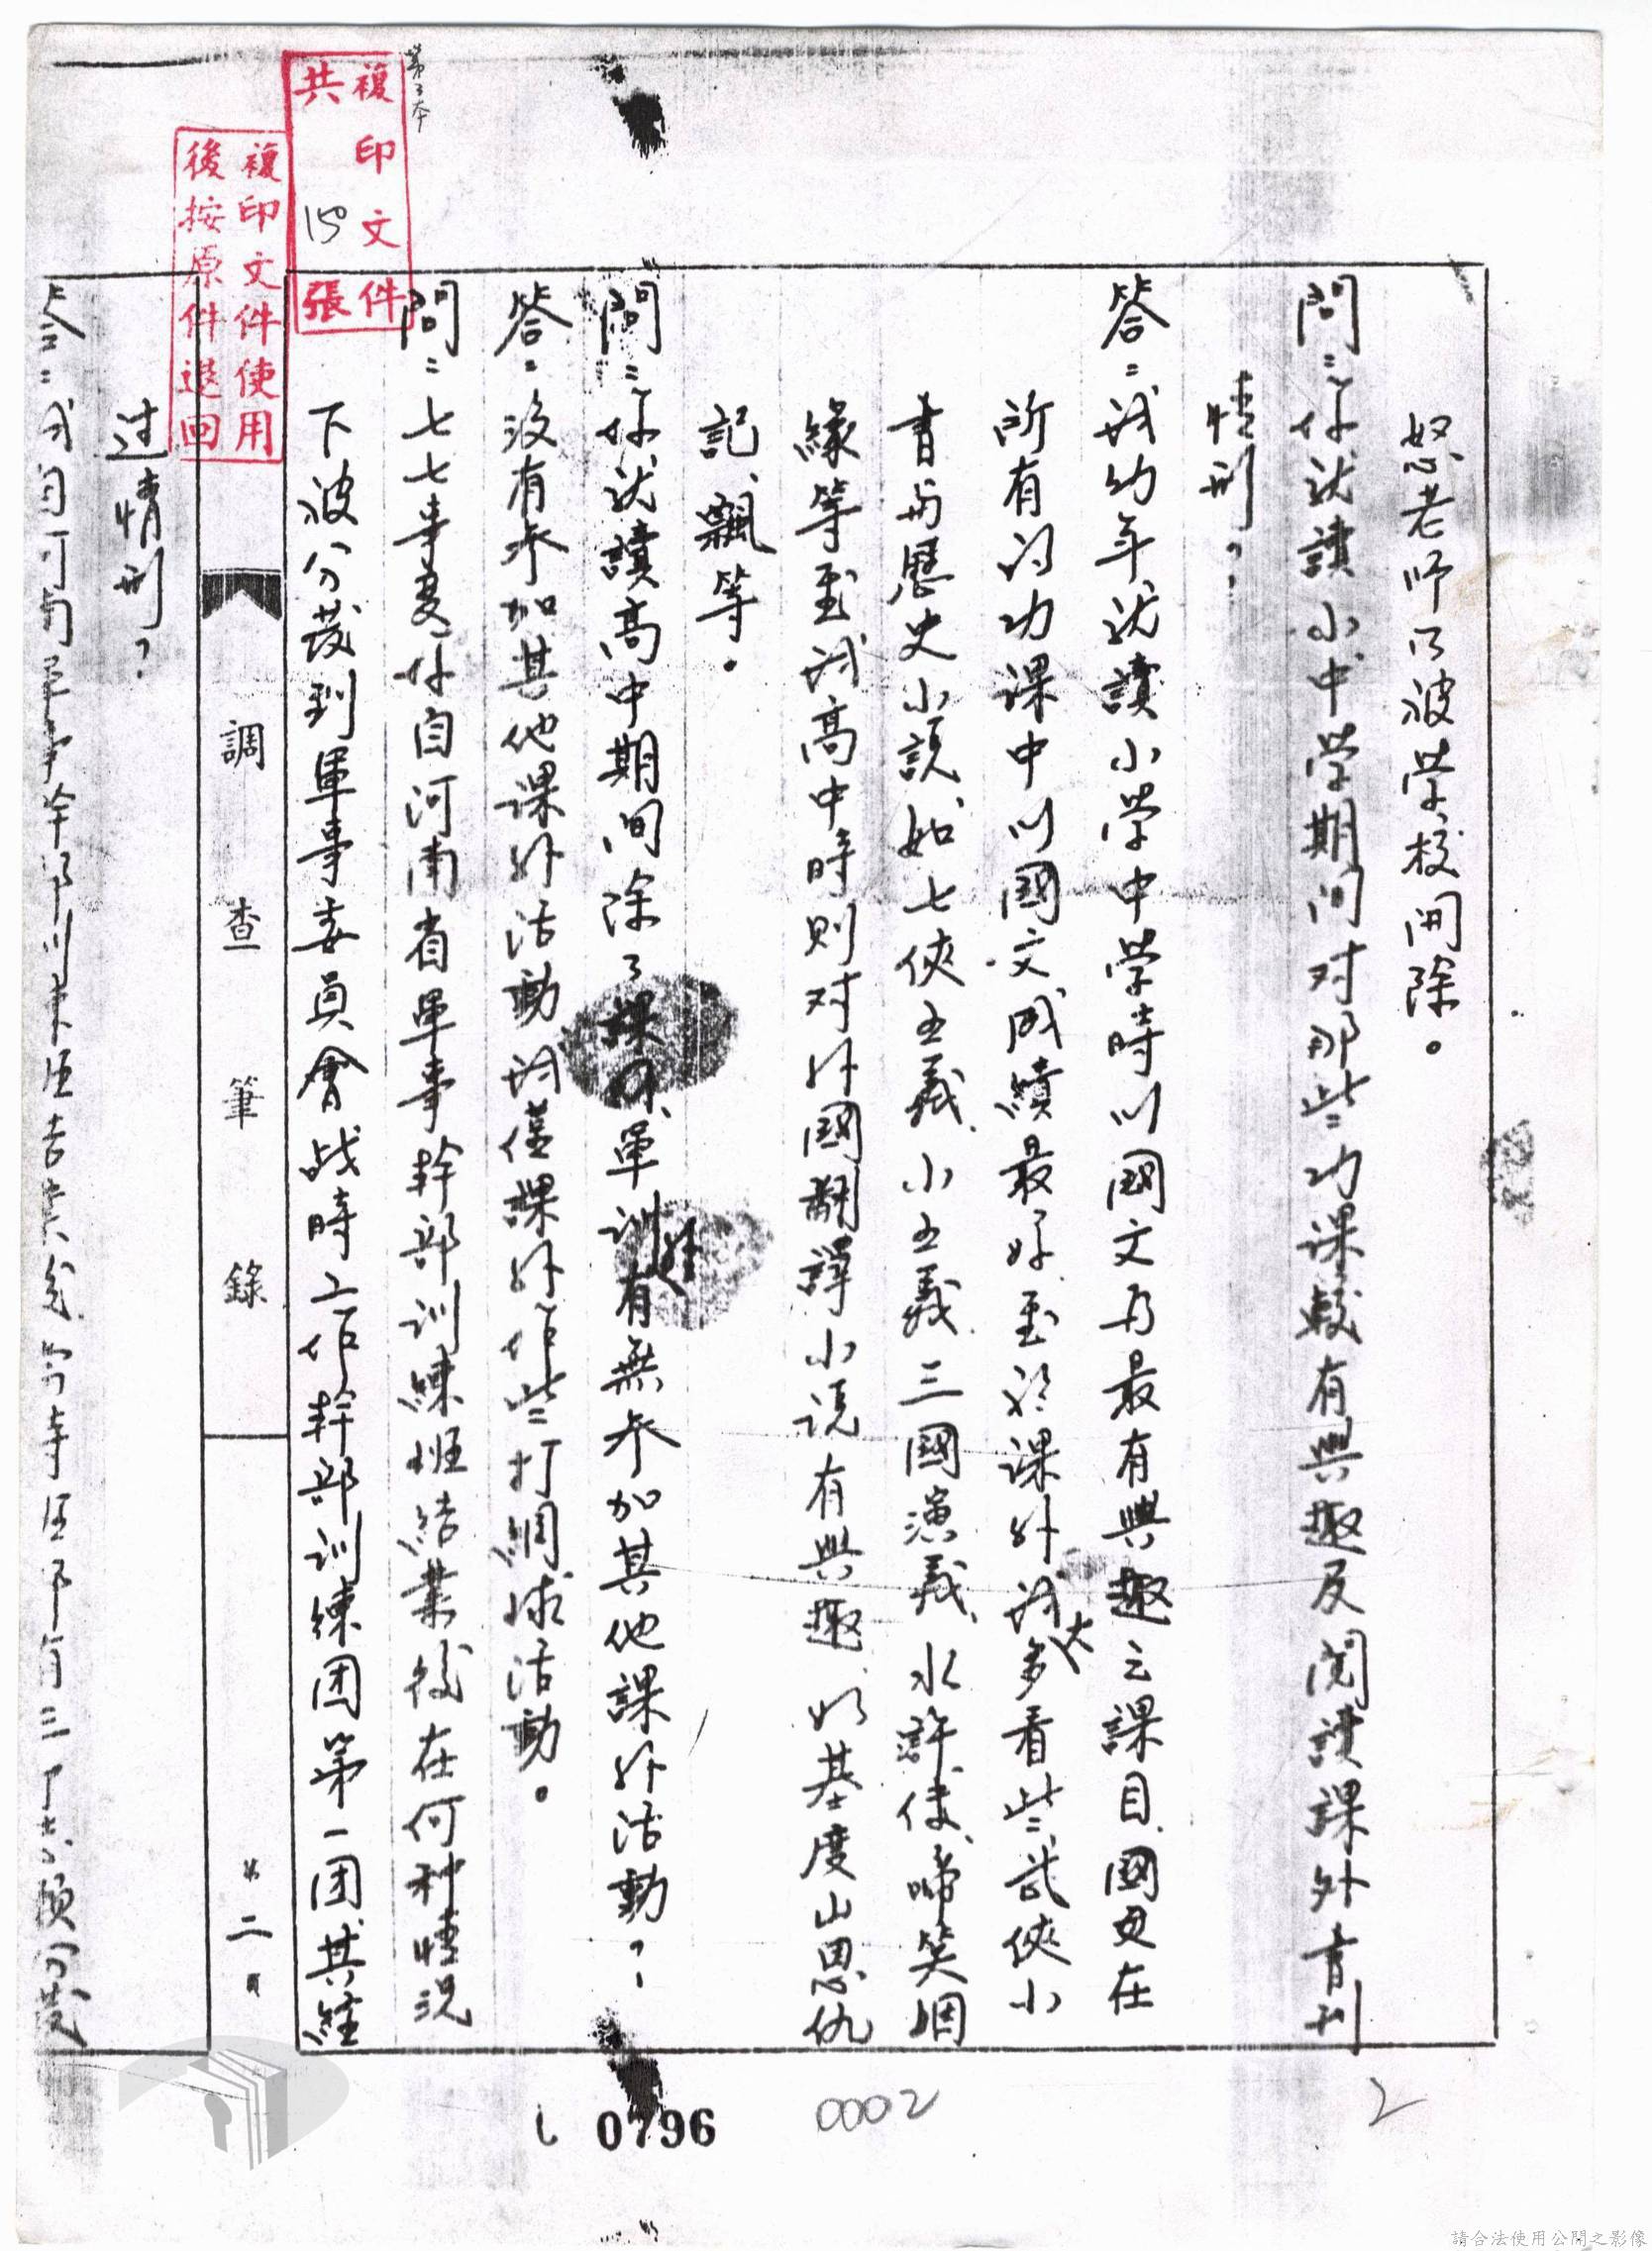 怒老师乃被学校開除。
問：你就讀小中学期间对那些功课較有興趣及閱讀課外書刊
情形？
答：我幼年就讀小学中学時以國文为最有興趣之課目、國文在
所有的功課中以國文成績最好、至於課外我大多看些武俠小
書与歷史小説、如七俠五義、小五義、三國演義、水滸傳、啼笑姻
緣等至我高中時則对外國翻譯小説有興趣、如基度山恩仇
記、飄等。
問：你就讀高中期间除了課外、軍训外有無参加其他課外活動？
答：沒有参加其他課外活動、我僅課外作些打網球活動。
問：七七事变你自河南省軍事幹部训練班结業後在何种情況
下被分發到軍事委員會战時工作幹部训練团第一团其經
过情形？
答：我自河南軍事幹部训練班
調查筆錄
第二頁
複印文件
共 150 張
複印文件使用
後按原件退回
0796
0002
2
請合法使用公開之影像